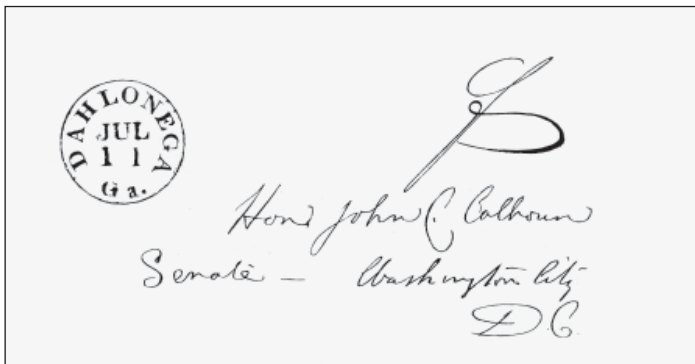 DAHLONEGA
JUL
11
Ga.
Hon John C. Calhoun
Senate – Washington City
D.C.